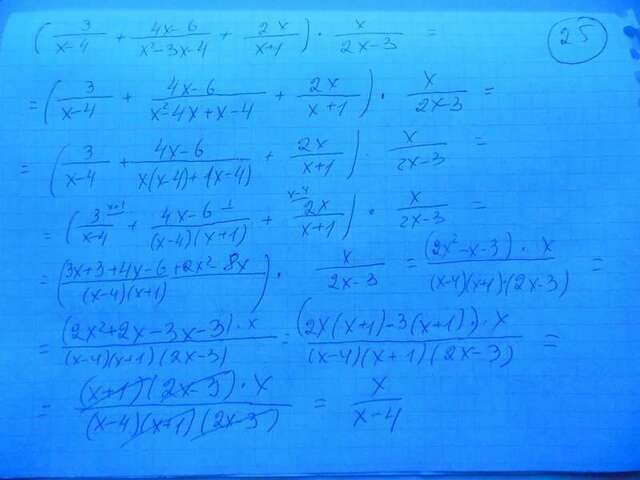 (3/(x-4) + (4x-6)/(x²-3x-4) + 2x/(x+1)) · x/(2x-3) =
25
= (3/(x-4) + (4x-6)/(x²-4x+x-4) + 2x/(x+1)) · x/(2x-3) =
= (3/(x-4) + (4x-6)/(x(x-4)+1(x-4)) + 2x/(x+1)) · x/(2x-3) =
= (3^(x+1)/(x-4) + (4x-6)^1/((x-4)(x+1)) + ^(x-4)2x/(x+1)) · x/(2x-3) =
= ((3x+3+4x-6+2x²-8x)/((x-4)(x+1))) · x/(2x-3) = ((2x²-x-3)·x)/((x-4)(x+1)·(2x-3)) =
= ((2x²+2x-3x-3)·x)/((x-4)(x+1)(2x-3)) = ((2x(x+1)-3(x+1))·x)/((x-4)(x+1)(2x-3)) =
= ((x+1)(2x-3)·x)/((x-4)(x+1)(2x-3)) = x/(x-4)